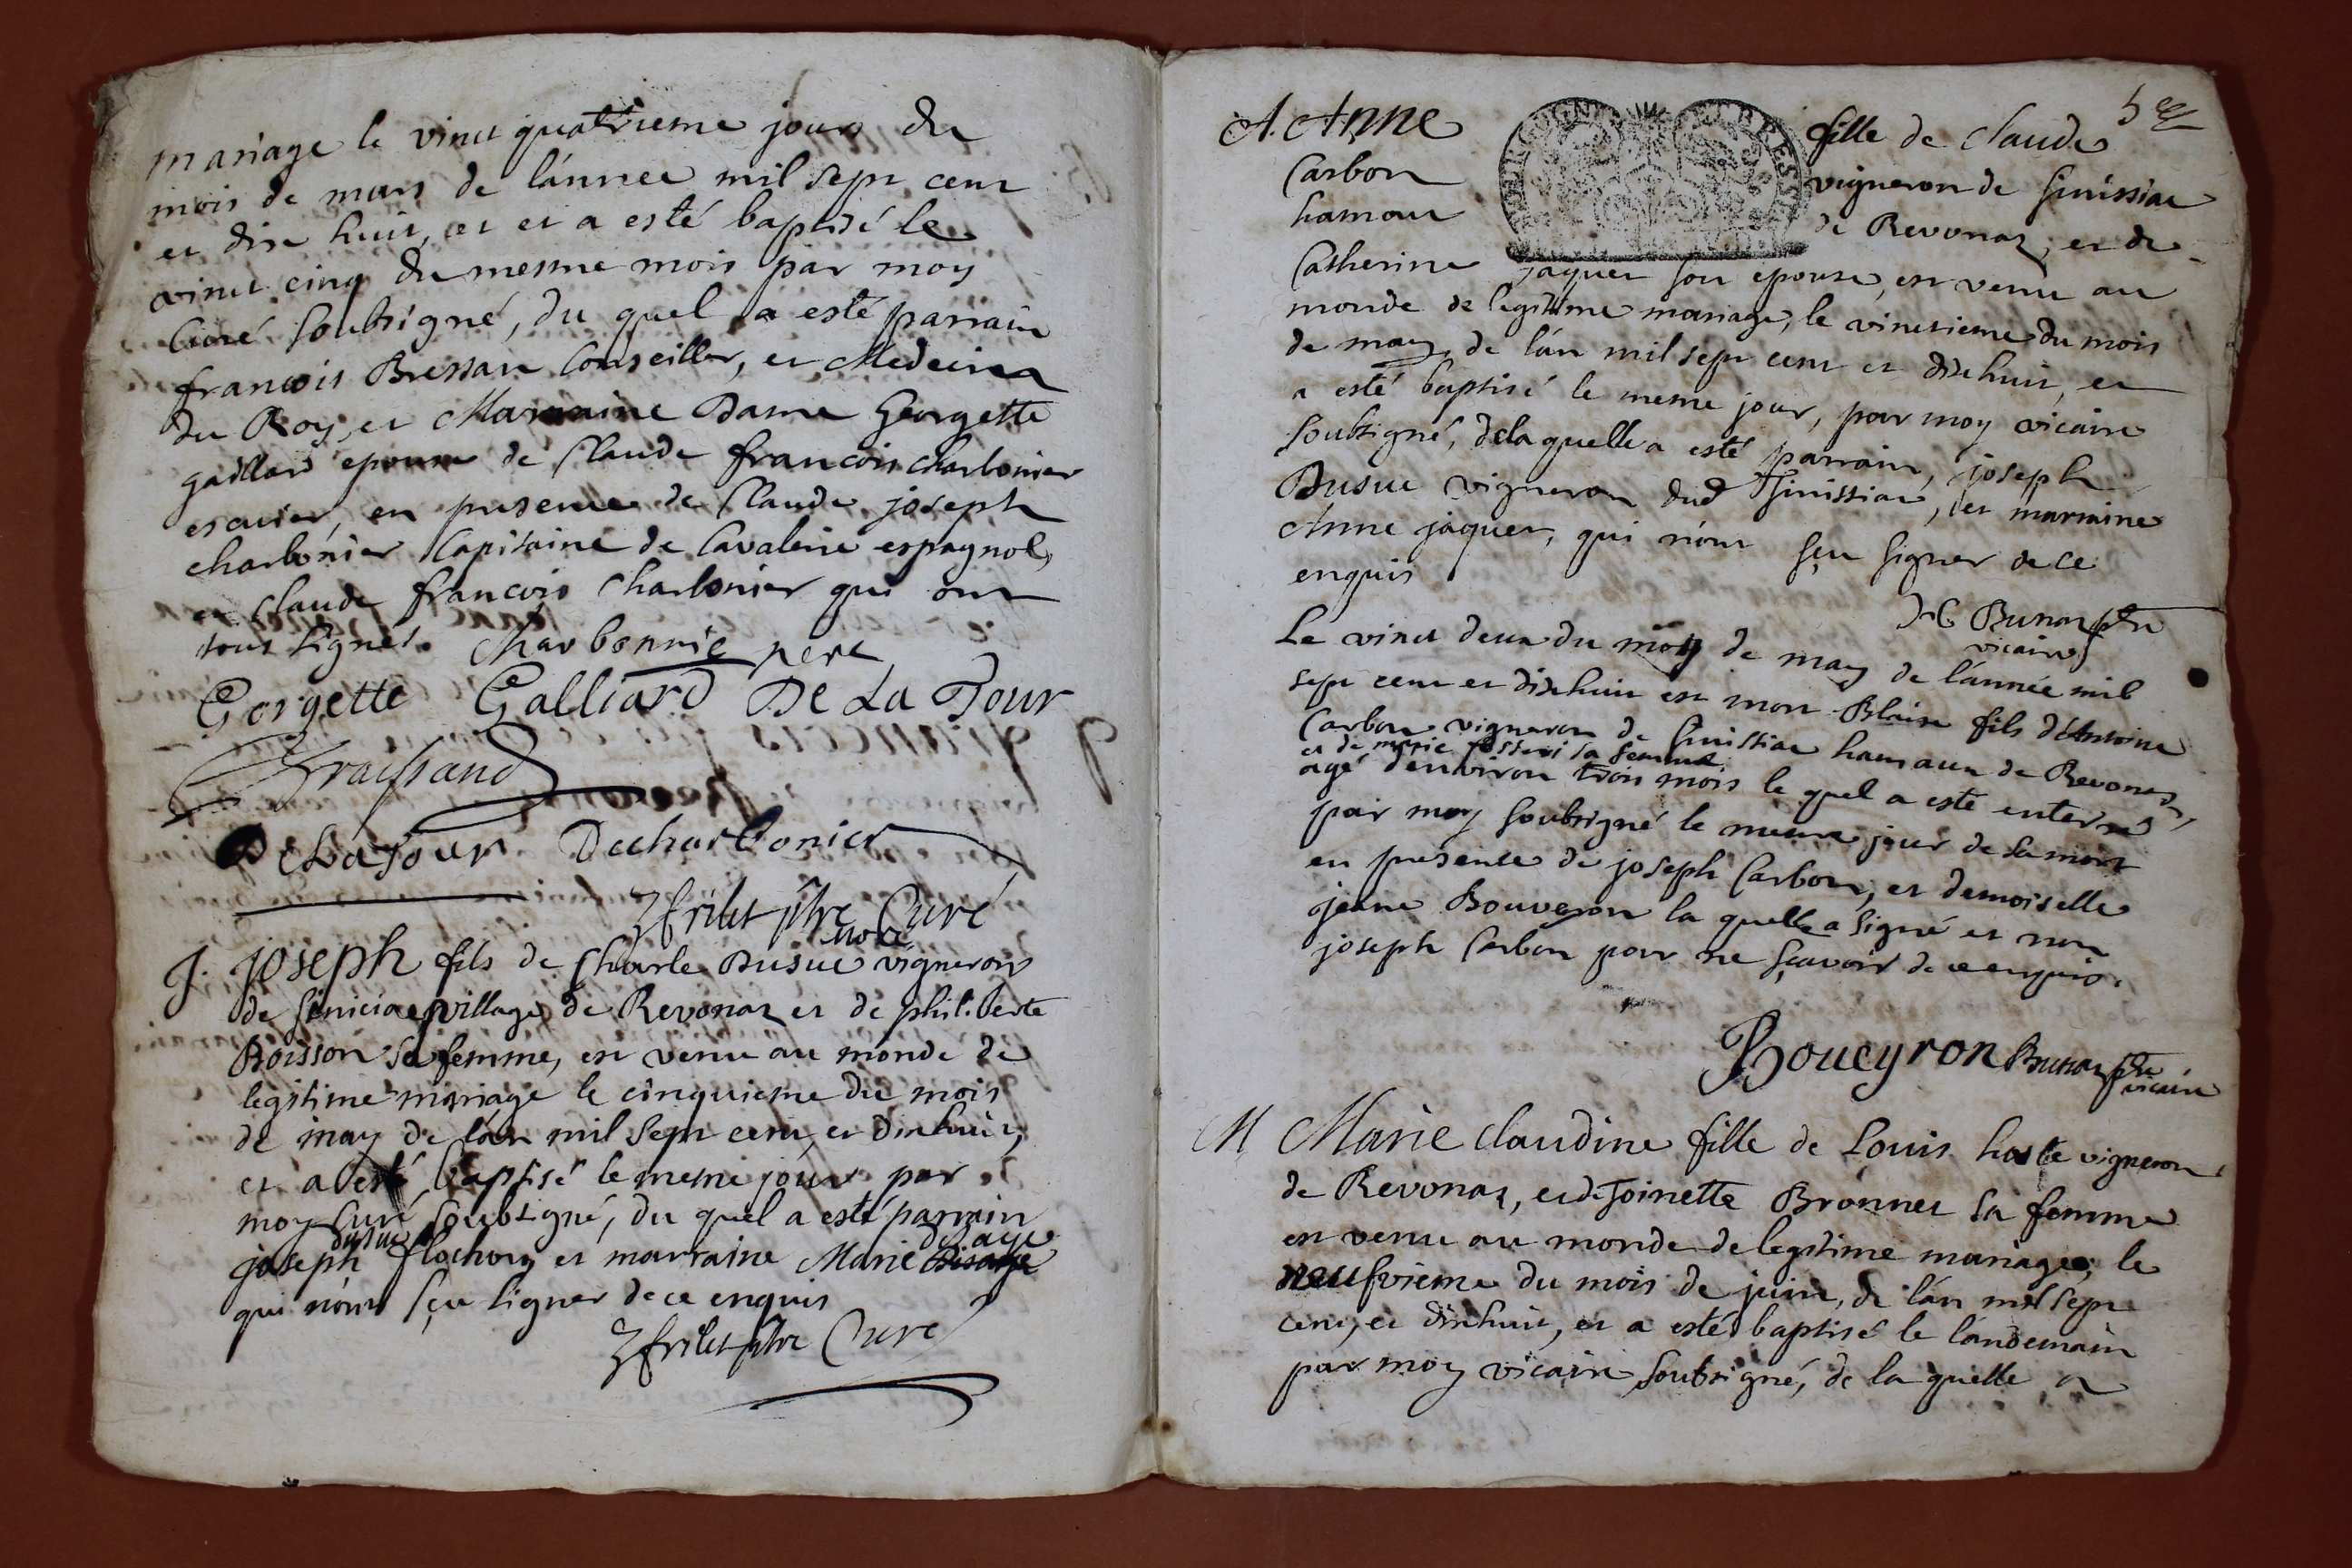 mariage le vint quatrieme jour du
mois de mars de l'annee mil sept cent
et dix huit, et et a esté baptisé le
vint cinq du mesme mois par moy
Curé soubsigné, du quel a esté parrain
francois Bressan Conseiller, et Medecin
du Roy, et Marraine Dame Georgette
gaillard epouse de Claude francois charbonier
escuier, en presence de Claude joseph
charbonier Capitaine de Cavalerie espagnol,
et Claude francois Charbonier qui ont
tous signés. Charbonnie pere
Gorgette Galliard De La Tour
De La Tour Decharbonier
frilet ptre Curé
J. joseph fils de Charle Dusuc vigneron
de village de Revonaz et de philiberte
Boisson sa femme, est venu au monde de
legitime mariage le cinquieme du mois
de may de l'an mil sept cent, et dixhuit,
et a esté baptisé le meme jour par
moy Curé soubsigné, du quel a esté parrain
joseph dusuc et marraine Marie
qui n'ont sçu signer de ce enquis
frilet ptre Curé
5e
A. Anne fille de claude
Carbon vigneron de Sinissiat
hamau de Revonaz, et de
Catherine jaquet son epouse, est venu au
monde de legitime mariage, le vintieme du mois
de may, de l'an mil sept cent et dixhuit, et
a esté baptisé le meme jour, par moy vicaire
soubsigné, de la quelle a esté parrain, joseph
Dusuc vigneron dud Sinissiat, et marraine
Anne jaquet, qui n'ont sçu signer de ce
enquis
Bunaz ptre
vicaire
Le vint deux du moy de may de l'année mil
sept cent et dixhuit est mort Blaise fils d'Antoine
Carbon vigneron de Sinissiat hamaux de Revonaz,
et de marie sa femme
agé d'environ trois mois le quel a esté enterré
par moy soubsigné le meme jour de sa mort
en presence de joseph Carbon, et demoiselle
jeane Bouveron la quelle a signé et non
joseph Carbon pour ne sçavoir de ce enquis.
Boueyron Bunaz ptre
vicaire
M Marie claudine fille de Louis haste vigneron
de Revonaz, et de Toinette Bronnet sa femme
est venu au monde de legitime mariage, le
neufvieme du mois de juin, de l'an mil sept
cent, et dixhuit, et a esté baptisé le landemain
par moy vicaire soubsigné, de la quelle a